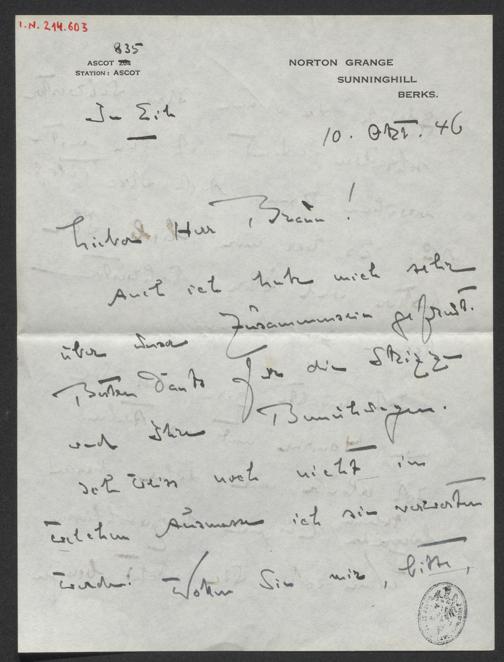 I.N. 214.603
835
ASCOT
STATION: ASCOT
NORTON GRANGE
SUNNINGHILL
BERKS.
In Eile
10. Okt. 46
Lieber Herr Braun!
Auch ich habe mich sehr
über unser Zusammensein gefreut.
Besten Dank für die Skizze
und Ihre Bemühungen.
Ich weiss noch nicht im
welchem Ausmasse ich sie verwerten
werde: Wollen Sie mir, bitte,